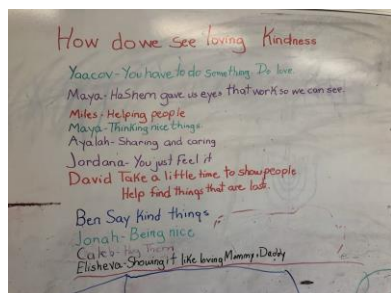 How do we see loving Kindness
Yaacov - You have to do something. Do love
Maya - HaShem gave us eyes that work so we can see
Miles - Helping people
Maya - Thinking nice things
Ayalah - Sharing and caring
Jordana - You just feel it
David Take a little time to show people
Help find things that are lost.
Ben Say Kind things
Jonah - Being nice
Caleb - Hug Them
Elisheva - Showing it like loving Mommy, Daddy